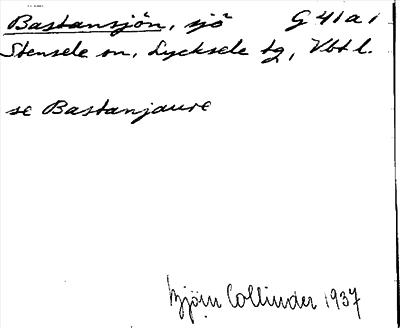 Bastansjön, sjö G 41 a 1
Stensele sn, Lycksele tg, Vbtl.
se Bastanjaure
Björn Collinder 1937